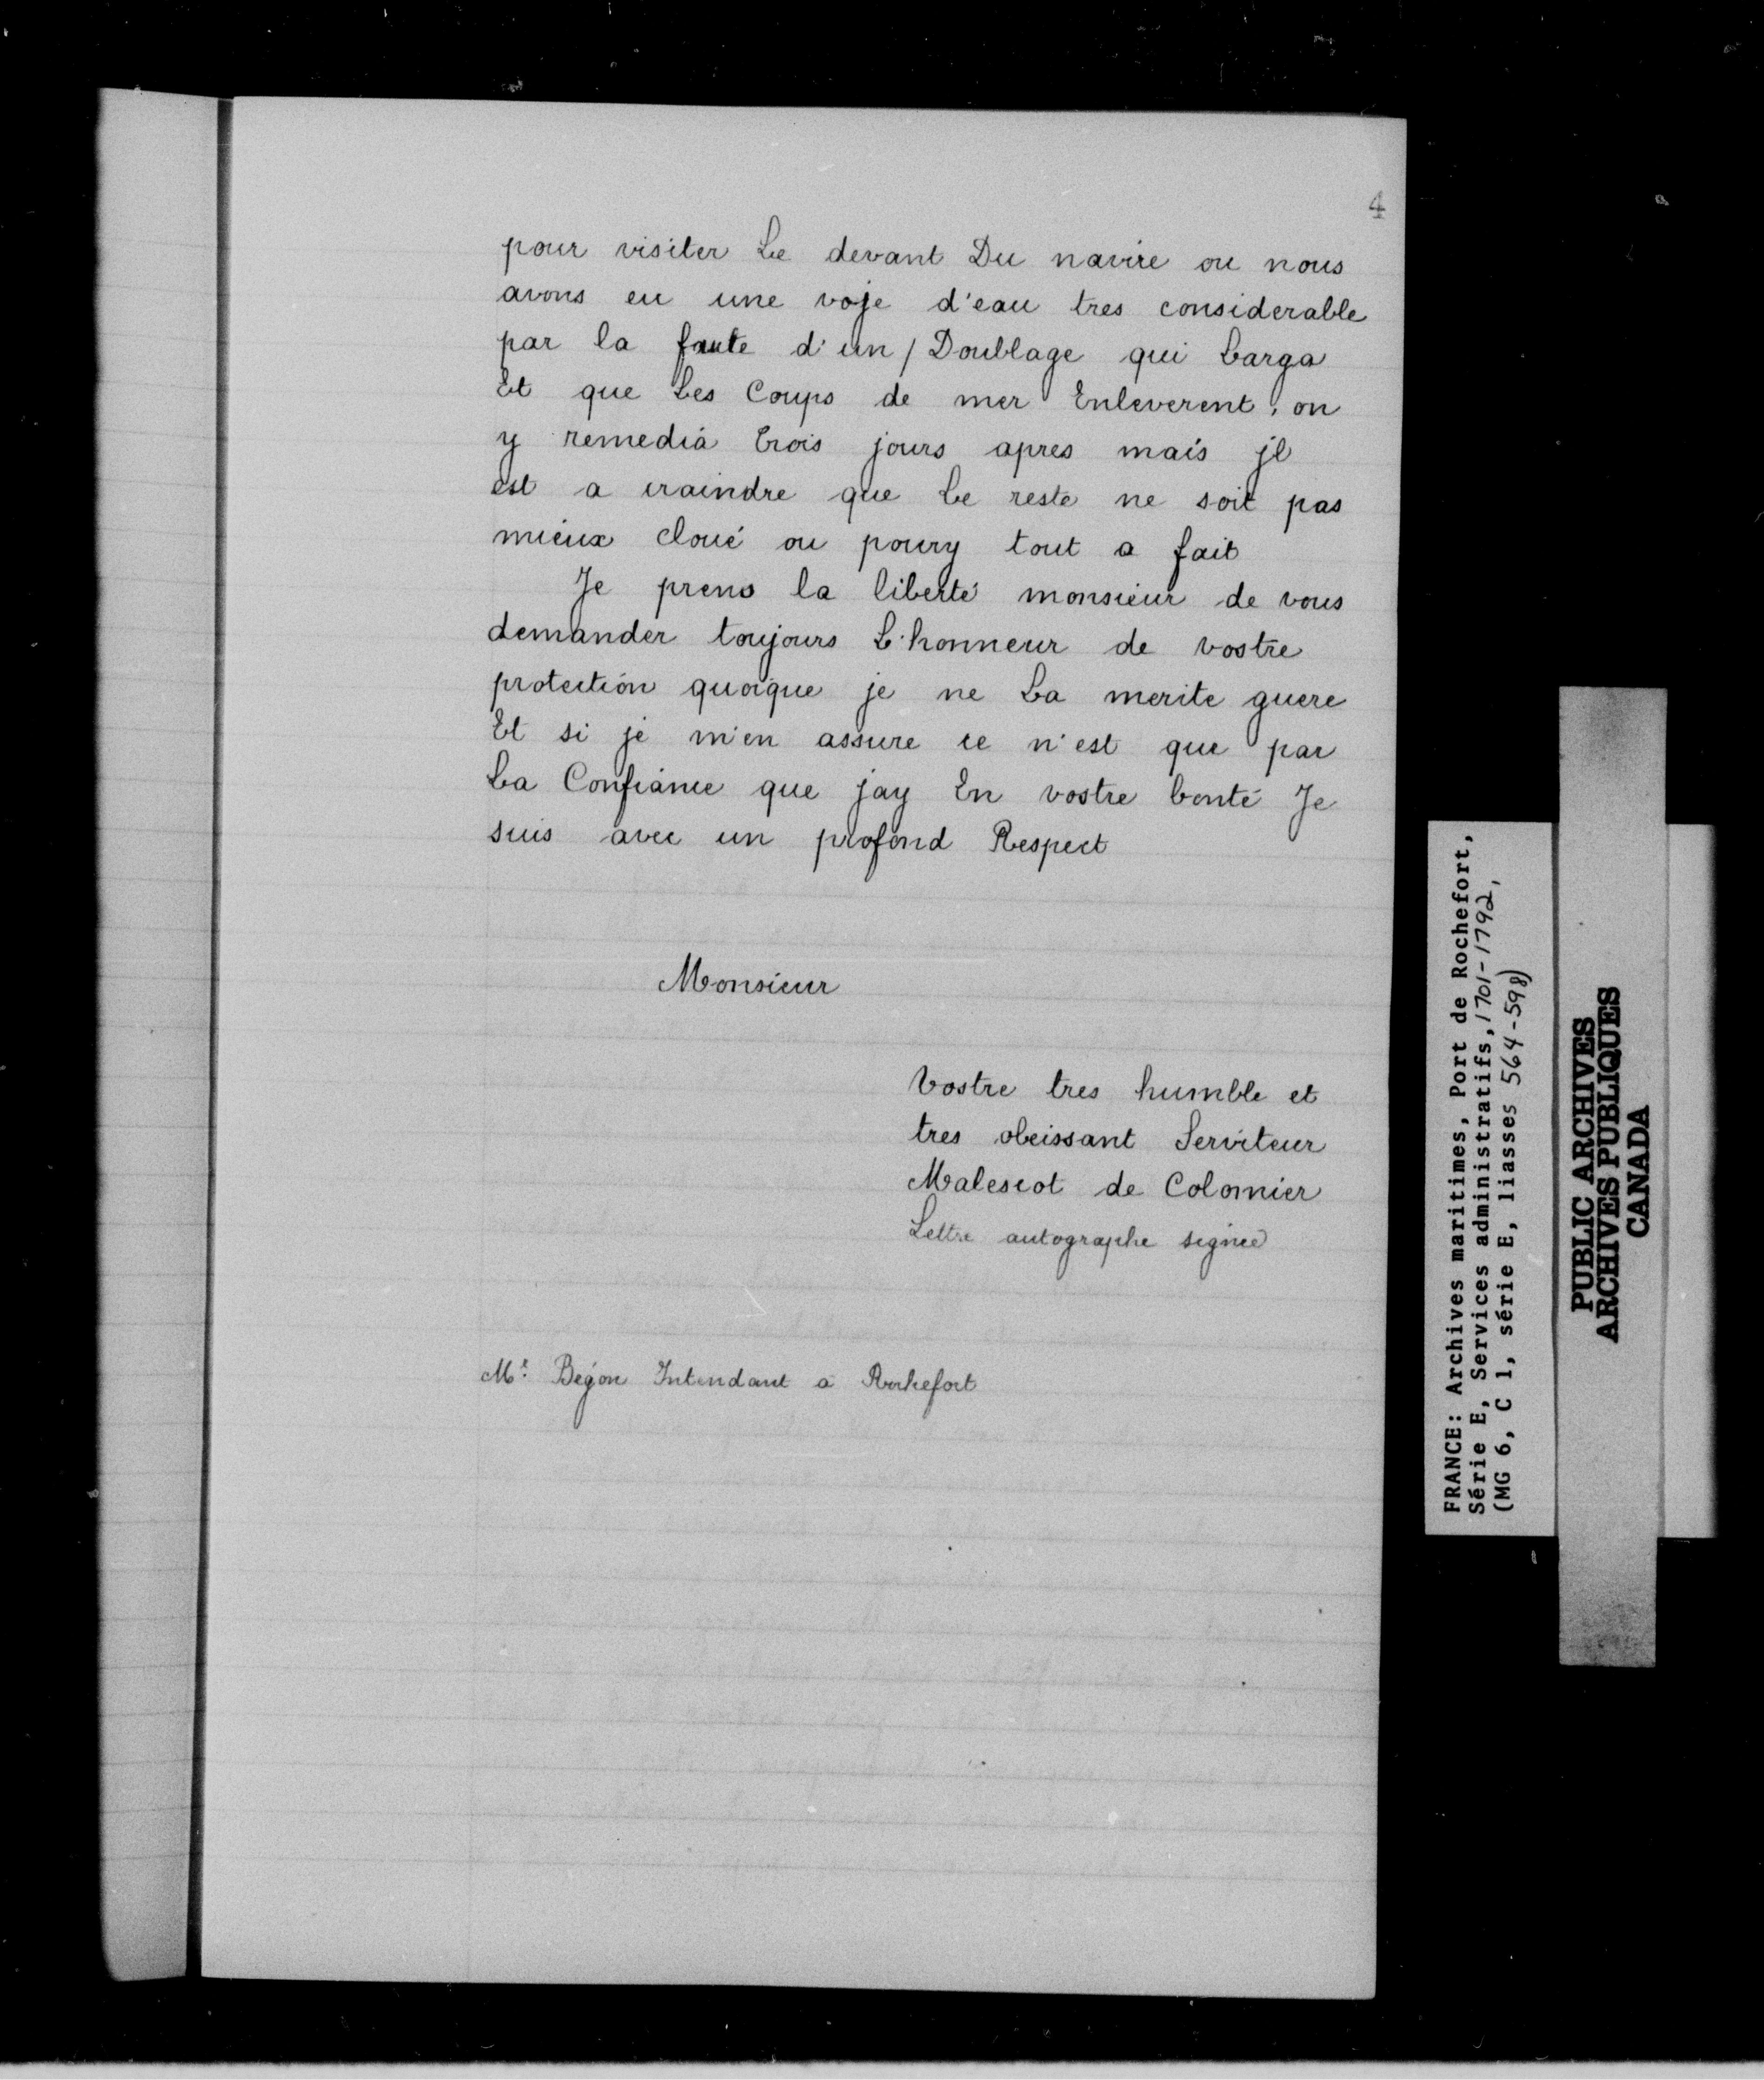 4
pour visiter Le devant Du navire ou nous
avons eu une voje d'eau tres considerable
par la faute d'un / Doublage qui Larga
Et que Les Coups de mer Enleverent, on
y remedia trois jours apres mais jl
est a craindre que Le reste ne soit pas
mieux cloué ou poury tout a fait
Je prens la liberté monsieur de vous
demander toujours L'honneur de vostre
protection quoique je ne La merite guere
Et si je m'en assure ce n'est que par
La Confiance que jay En vostre bonté Je
suis avec un profond Respect
Monsieur
Vostre tres humble et
tres obeissant Serviteur
Malescot de Colomier
Lettre autographe signée
Mr. Bégon Intendant a Rochefort
FRANCE: Archives maritimes, Port de Rochefort,
Série E, Services administratifs, 1701-1792,
(MG 6, C 1, série E, liasses 564-598)
PUBLIC ARCHIVES
ARCHIVES PUBLIQUES
CANADA